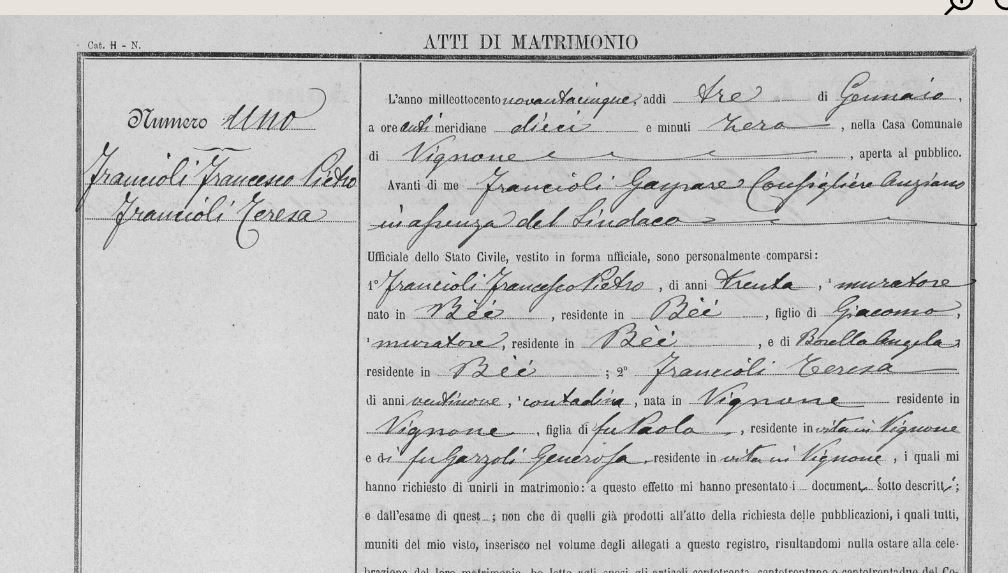 Cat. H - N.
ATTI DI MATRIMONIO
Numero Uno
Francioli Francesco Pietro
Francioli Teresa
L'anno milleottocento novantacinque, addì tre di Gennaio,
a ore anti meridiane dieci e minuti zero, nella Casa Comunale
di Vignone, aperta al pubblico.
Avanti di me Francioli Gaspare Consigliere Anziano
in assenza del Sindaco
Ufficiale dello Stato Civile, vestito in forma ufficiale, sono personalmente comparsi:
1° Francioli Francesco Pietro, di anni trenta, muratore
nato in Bèè, residente in Bèè, figlio di Giacomo,
muratore, residente in Bèè, e di Borella Angela
residente in Bèè; 2° Francioli Teresa
di anni ventinove, contadina, nata in Vignone residente in
Vignone, figlia di fu Paolo, residente in vita in Vignone
e di fu Garzoli Generosa, residente in vita in Vignone, i quali mi
hanno richiesto di unirli in matrimonio: a questo effetto mi hanno presentato i documenti sotto descritti;
e dall'esame di quest; non che di quelli già prodotti all'atto della richiesta delle pubblicazioni, i quali tutti,
muniti del mio visto, inserisco nel volume degli allegati a questo registro, risultandomi nulla ostare alla cele-
brazione del loro matrimonio, ho letto agli sposi gli articoli centotrenta, centotrentuno e centotrentadue del Co-